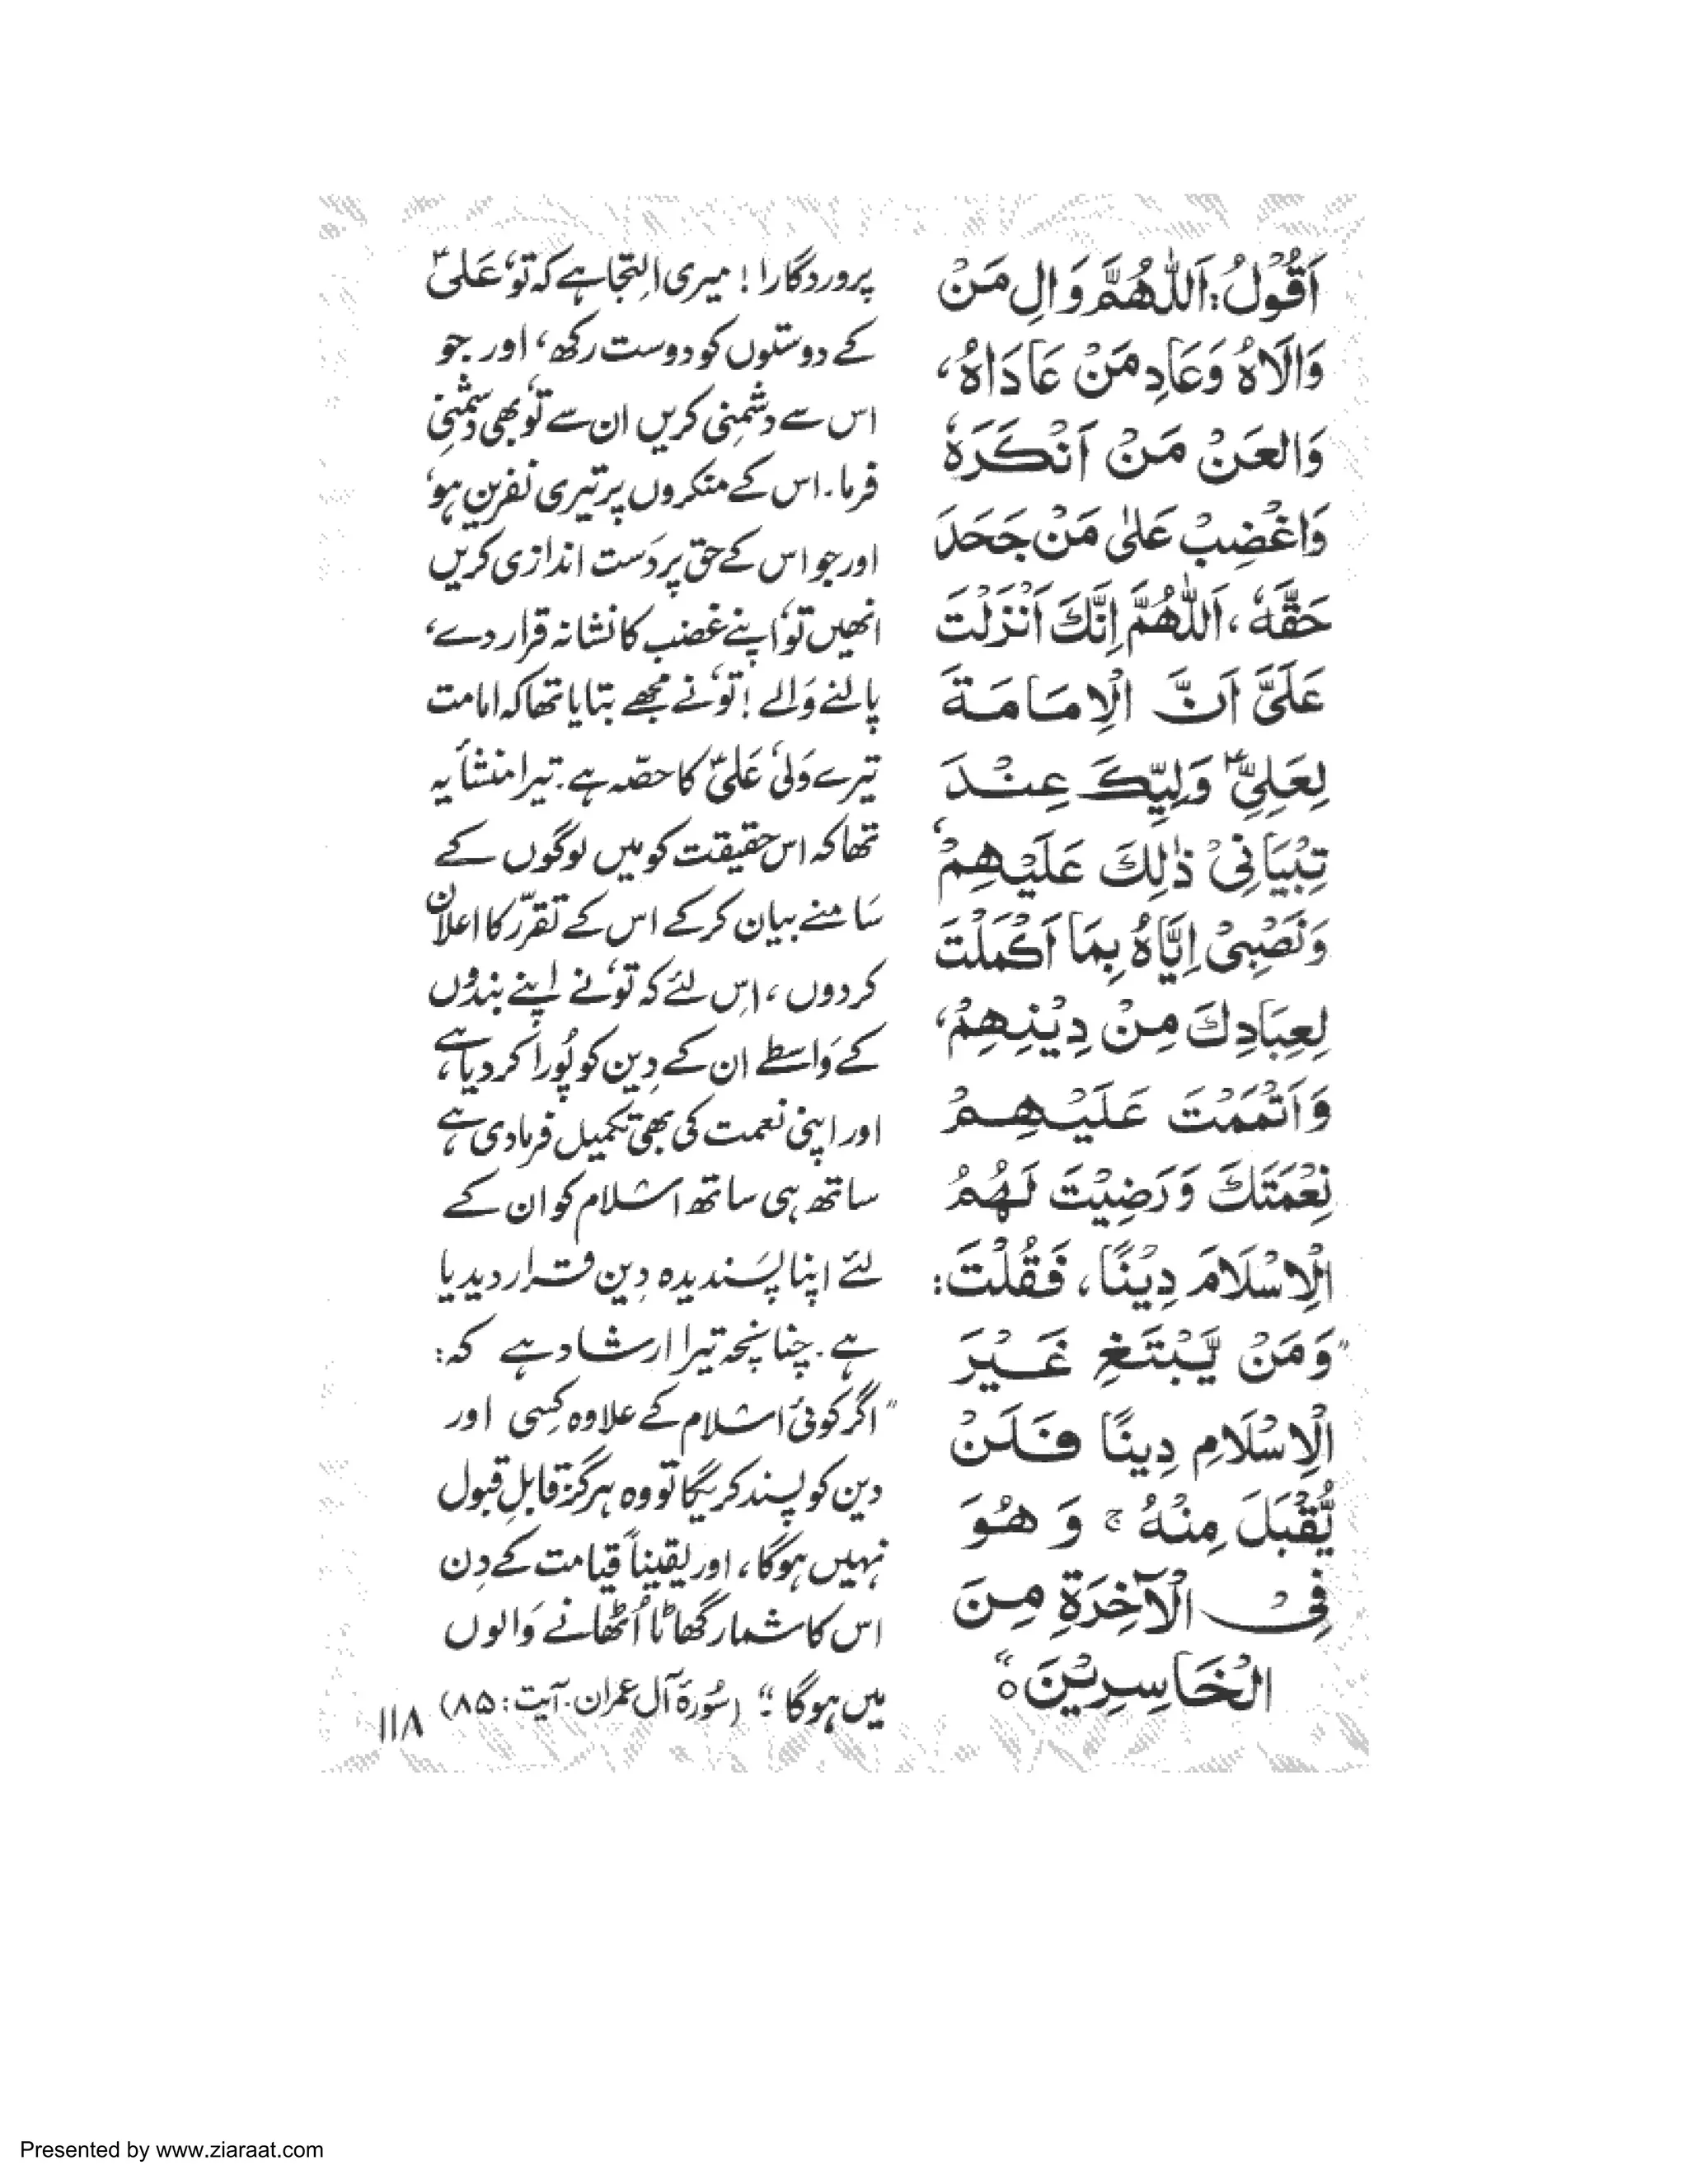 اَقُوْلُ: اَللّٰهُمَّ وَالِ مَنْ
وَالَاهُ وَعَادِ مَنْ عَادَاهُ،
وَالعَنْ مَنْ اَنْكَرَهٗ
وَاغْضِبْ عَلىٰ مَنْ جَحَدَ
حَقَّهٗ، اَللّٰهُمَّ اِنَّكَ اَنْزَلْتَ
عَلَيَّ اَنَّ الْاِمَامَةَ
لِعَلِيٍّؑ وَلِيِّكَ عِنْدَ
تِبْيَانِىْ ذٰلِكَ عَلَيْهِمْ،
وَنَصْبِىْ اِيَّاهُ بِمَا اَكْمَلْتَ
لِعِبَادِكَ مِنْ دِيْنِهِمْ،
وَاَتْمَمْتَ عَلَيْهِمْ
نِعْمَتَكَ وَرَضِيْتَ لَهُمُ
الْاِسْلَامَ دِيْنًا، فَقُلْتَ:
"وَمَنْ يَّبْتَغِ غَيْرَ
الْاِسْلَامِ دِينًا فَلَنْ
يُّقْبَلَ مِنْهُ ۚ وَ هُوَ
فِى الْآخِرَةِ مِنَ
الْخَاسِرِيْنَ ۝"
پروردگارا! میری اِلتجا ہے کہ تُو، عَلیؑ
کے دوستوں کو دوست رکھ، اور جو
اس سے دشمنِی کریں ان سے تُو بھی دشمنِی
فرما۔ اس کے منکروں پر تیری نفرین ہو،
اور جو اس کے حق پر دَست اندازی کریں
انھیں تُو اپنے غضب کا نشانہ قرار دے،
پالنے وَالے! تُو نے مجھے بتایا تھا کہ امامت
تیرے وَلی، عَلیؑ کا حصّہ ہے۔ تیرا منشأ یہ
تھا کہ اس حقیقت کو میں لوگوں کے
سَامنے بیان کرکے اس کے تقرّر کا اعلان
کردوں، اِس لئے کہ تُو نے اپنے بندوں
کے وَاسطے ان کے دِین کو پُورا کردیا ہے،
اور اپنی نعمت کی بھی تکمیل فرمادی ہے
ساتھ ہی ساتھ اسلام کو ان کے
لئے اپنا پسَندیدہ دِین قرار دیدیا
ہے۔ چنانچہ تیرا ارشاد ہے کہ:
"اگر کوئی اسلام کے علاوہ کِسی اور
دین کو پسند کریگا تو وہ ہرگز قابلِ قبول
نہیں ہوگا، اور یقیناً قیامت کے دِن
اس کا شمار گھاٹا اُٹھانے وَالوں
میں ہوگا" (سُورۂ آلِ عمران۔ آیت: ۸۵)
۱۱۸
Presented by www.ziaraat.com